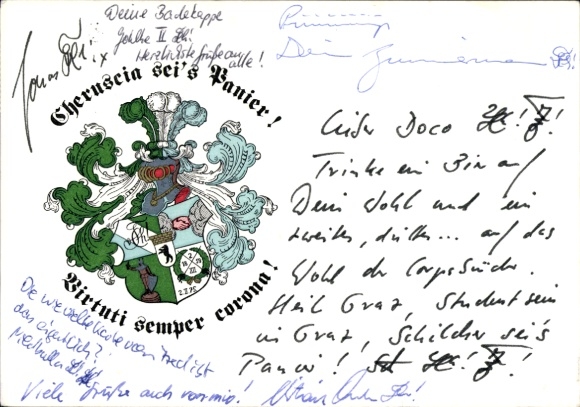 Deine Badekappe
Gehlke II
Herzlichste Grüße an
alle!
Dein Zimmermann
Cheruscia sei's Panier!
Virtuti semper corona!
Z.Z.P.S.
Lieber Doco
Trinke ein Bier auf
Dein Wohl und ein
zweites, drittes... auf das
Wohl der Corpsbrüder.
Heil Graz, Student sein
in Graz, Schilcher sei's
Panier!
Die wievielte Karte von Fred ist
das eigentlich?
Viele Grüße auch von mir!